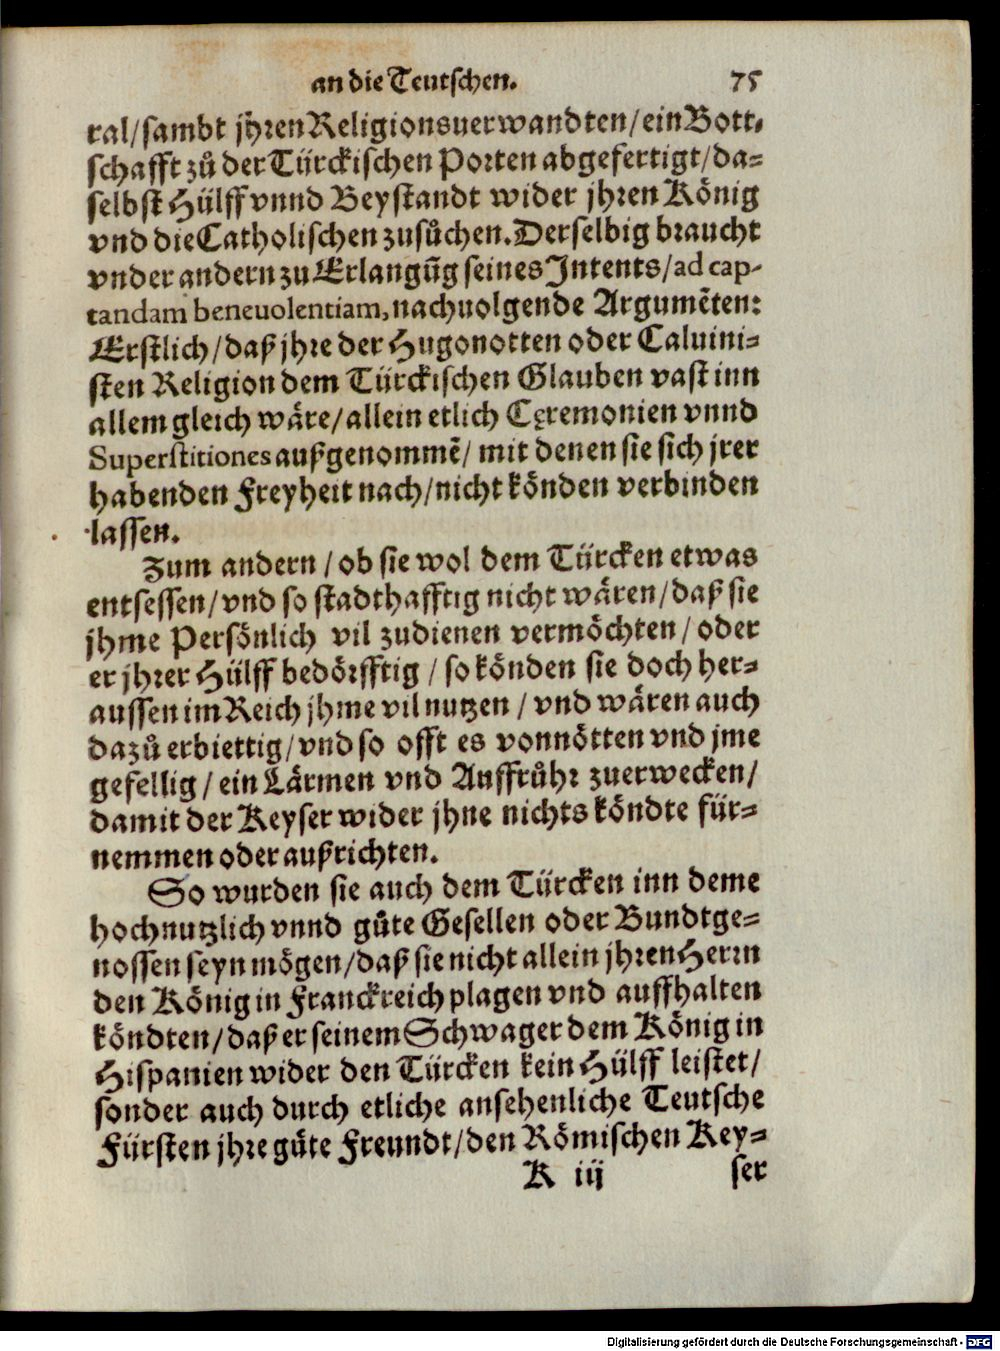 an die Teutschen. 75
ral/sambt jhren Religionsuerwandten/ein Bott-
schafft zů der Türckischen Porten abgefertigt/da-
selbst Hülff vnnd Beystandt wider jhren König
vnd die Catholischen zusůchen. Derselbig braucht
vnder andern zu Erlangūg seines Intents/ad cap-
tandam beneuolentiam, nachuolgende Argumēten:
Erstlich/daß jhre der Hugonotten oder Caluini-
sten Religion dem Türckischen Glauben vast inn
allem gleich wäre/allein etlich Ceremonien vnnd
Superstitiones außgenommē/ mit denen sie sich jrer
habenden Freyheit nach/nicht könden verbinden
lassen.
Zum andern / ob sie wol dem Türcken etwas
entsessen/vnd so stadthafftig nicht wären/daß sie
jhme Persönlich vil zudienen vermöchten/ oder
er jhrer Hülff bedörfftig / so könden sie doch her-
aussen im Reich jhme vil nutzen / vnd wären auch
dazů erbiettig/vnd so offt es vonnötten vnd jme
gefellig / ein Lärmen vnd Auffrůhr zuerwecken/
damit der Keyser wider jhne nichts köndte für-
nemmen oder außrichten.
So wurden sie auch dem Türcken inn deme
hochnutzlich vnnd gůte Gesellen oder Bundtge-
nossen seyn mögen/daß sie nicht allein jhren Herrn
den König in Franckreich plagen vnd auffhalten
köndten/daß er seinem Schwager dem König in
Hispanien wider den Türcken kein Hülff leistet/
sonder auch durch etliche ansehenliche Teutsche
Fürsten jhre gůte Freundt/den Römischen Key-
K iij ser
Digitalisierung gefördert durch die Deutsche Forschungsgemeinschaft - DFG